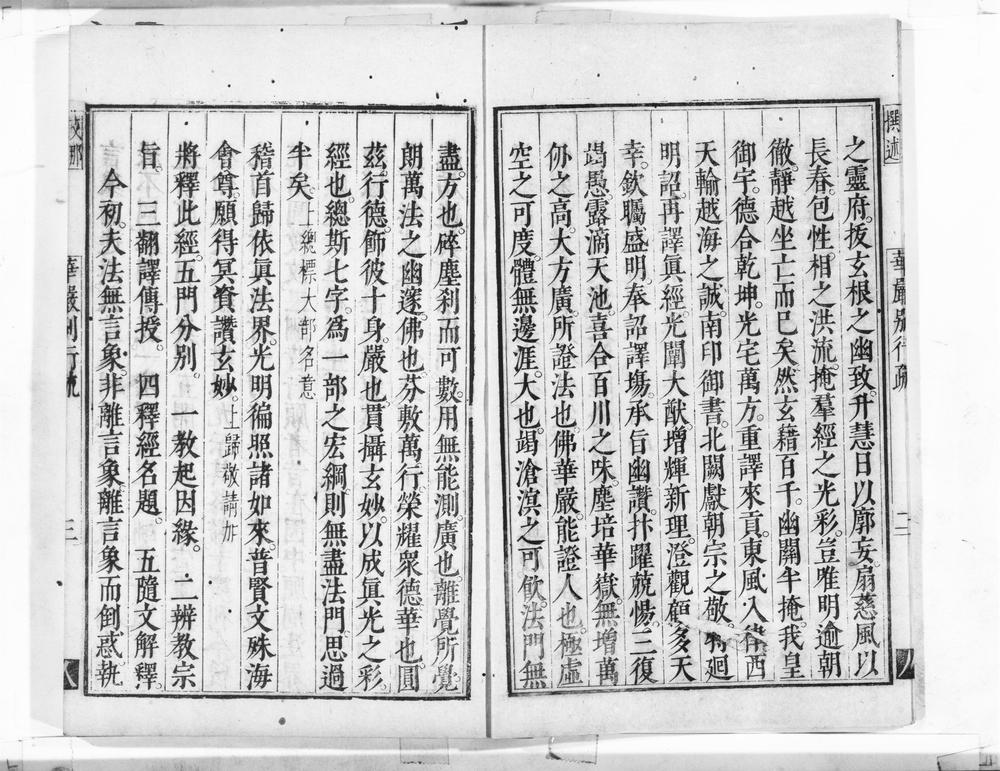 撰述
華嚴別行疏
二
之靈府。扳玄根之幽致。升慧日以廓妄。扇慈風以
長春。包性相之洪流。掩羣經之光彩。豈唯明逾朝
徹。靜越坐亡而已矣。然玄籍百千。幽關半掩。我皇
御宇。德合乾坤。光宅萬方。重譯來貢。東風入律。西
天輸越海之誠。南印御書。北闕獻朝宗之敬。特迴
明詔。再譯真經。光闡大猷。增輝新理。澄觀顧多天
幸。欽矚盛明。奉詔譯場。承旨幽讚。抃躍兢惕。三復
竭愚。露滴天池。喜合百川之味。塵培華嶽。無增萬
仞之高。大方廣。所證法也。佛華嚴。能證人也。極虛
空之可度。體無邊涯。大也。竭滄溟之可飲。法門無
盡。方也。碎塵刹而可數。用無能測。廣也。離覺所覺。
朗萬法之幽邃。佛也。芬敷萬行。榮耀衆德。華也。圓
茲行德。飾彼十身。嚴也。貫攝玄妙。以成眞光之彩。
經也。總斯七字。爲一部之宏綱。則無盡法門。思過
半矣。上總標大部名意
稽首歸依眞法界。光明徧照諸如來。普賢文殊海
會尊。願得冥資讚玄妙。上歸敬請加
將釋此經。五門分別。 一教起因緣。 二辨教宗
旨。 三翻譯傳授。 四釋經名題。 五隨文解釋。
今初。夫法無言象。非離言象。離言象而倒惑。執
支那
華嚴別行疏
三